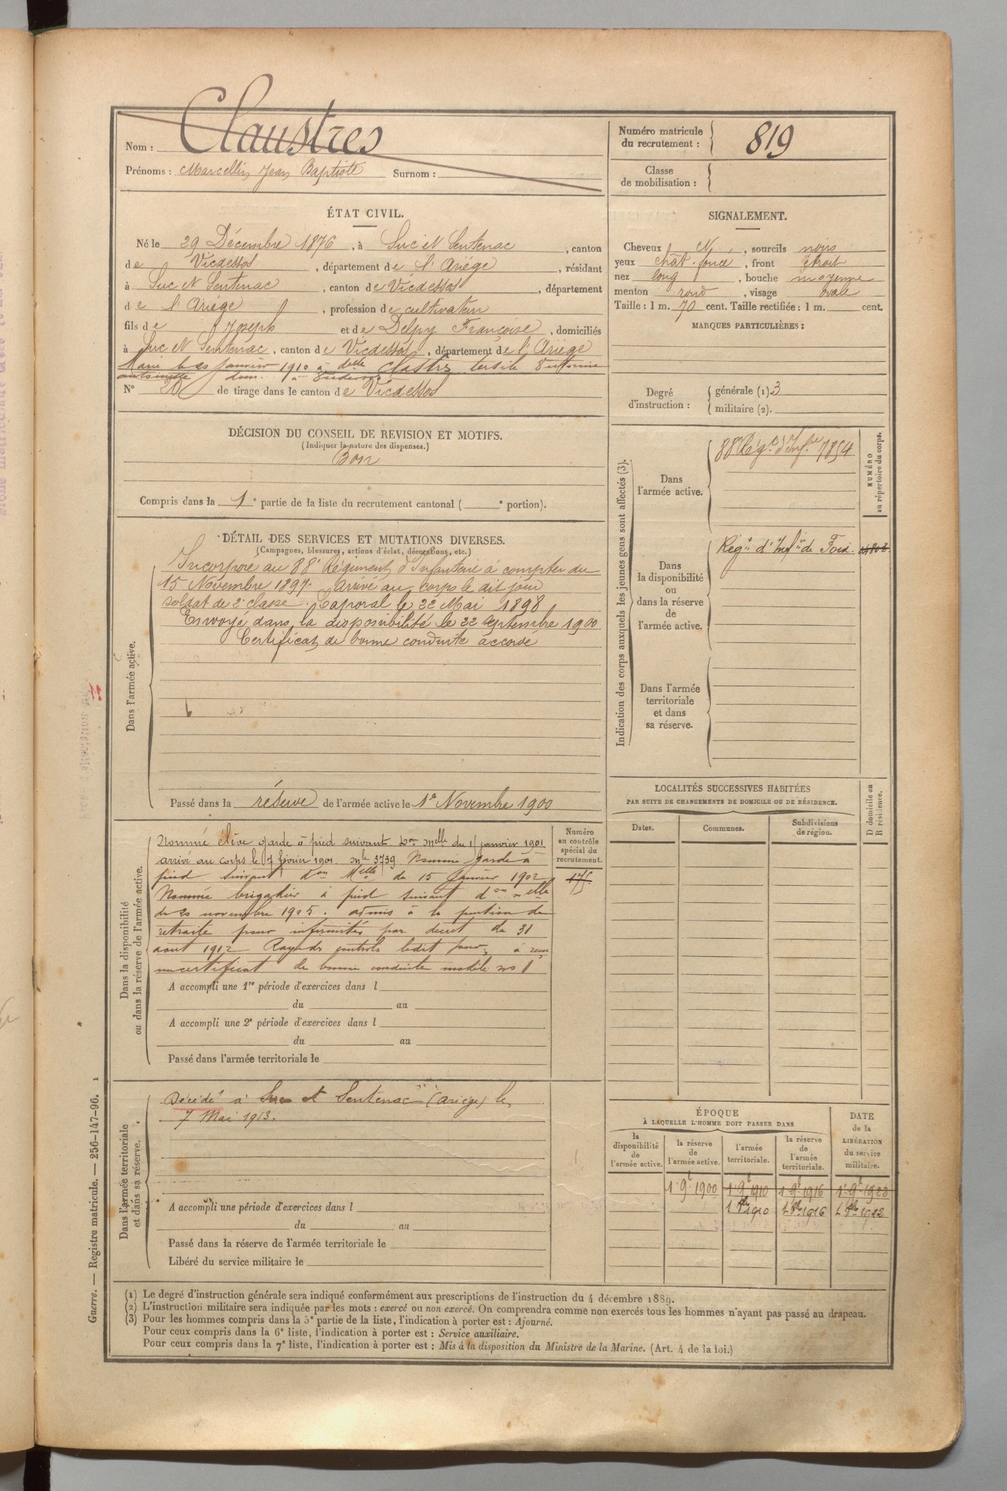 Nom : Claustres
Prénoms : Marcellin Jean Baptiste Surnom :
Numéro matricule du recrutement : 819
Classe de mobilisation :
ÉTAT CIVIL.
Né le 29 Décembre 1876, à Suc et Sentenac, canton
de Vicdessos, département de l'Ariége, résidant
à Suc et Sentenac, canton de Vicdessos, département
de l'Ariége, profession de cultivateur
fils de Joseph et de Delpy Françoise, domiciliés
à Suc et Sentenac, canton de Vicdessos, département de l'Ariége
Marié le janvier 1910 à delle
N° de tirage dans le canton de Vicdessos
SIGNALEMENT.
Cheveux N, sourcils noirs
yeux chât. foncé, front étroit
nez long, bouche moyenne
menton rond, visage ovale
Taille : 1 m. 70 cent. Taille rectifiée : 1 m. cent.
MARQUES PARTICULIÈRES :
Degré d'instruction : générale (1) 3
militaire (2).
DÉCISION DU CONSEIL DE REVISION ET MOTIFS.
(Indiquer la nature des dispenses.)
Bon
Compris dans la 1e partie de la liste du recrutement cantonal ( e portion).
DÉTAIL DES SERVICES ET MUTATIONS DIVERSES.
(Campagnes, blessures, actions d'éclat, décorations, etc.)
Dans l'armée active.
Incorporé au 88e Régiment d'Infanterie à compter du
15 Novembre 1897. Arrivé au corps le dit jour
soldat de 2e classe. Caporal le 22 Mai 1898
Envoyé dans la disponibilité le 22 Septembre 1900
Certificat de bonne conduite accordé
Passé dans la réserve de l'armée active le 1er Novembre 1900
Indication des corps auxquels les jeunes gens sont affectés (3).
NUMÉRO au répertoire du corps.
Dans l'armée active.
88e Régt d'Infie 7854
Dans la disponibilité ou dans la réserve de l'armée active.
Régt d'Infie de Foix.
Dans l'armée territoriale et dans sa réserve.
LOCALITÉS SUCCESSIVES HABITÉES
PAR SUITE DE CHANGEMENTS DE DOMICILE OU DE RÉSIDENCE.
Dates.
Communes.
Subdivisions de région.
D domicile ou R résidence.
Dans la disponibilité ou dans la réserve de l'armée active.
Numéro au contrôle spécial du recrutement.
Nommé élève garde à pied suivant Don melle du 11 janvier 1901
arrivé au corps le 7 février 1901. Mle 3739 Nommé garde à
pied suivant don Melle de 15 Janvier 1902
Nommé brigadier à pied suivant don melle
de 20 novembre 1905. admis à la pension de
retraite pour infirmités par décret du 31
aout 1912 Rayé des contrôles ledit jour, a reçu
un certificat de bonne conduite modèle no 1
A accompli une 1re période d'exercices dans l
du au
A accompli une 2e période d'exercices dans l
du au
Passé dans l'armée territoriale le
Dans l'armée territoriale et dans sa réserve.
Décédé à Suc et Sentenac (ariège) le
7 Mai 1913.
A accompli une période d'exercices dans l
du au
Passé dans la réserve de l'armée territoriale le
Libéré du service militaire le
ÉPOQUE
À LAQUELLE L'HOMME DOIT PASSER DANS
la disponibilité de l'armée active.
la réserve de l'armée active.
l'armée territoriale.
la réserve de l'armée territoriale.
DATE de la LIBÉRATION du service militaire.
1 9e 1900 1 9e 1910 1 9e 1916 1 9e 1922
1910 1916 1922
(1) Le degré d'instruction générale sera indiqué conformément aux prescriptions de l'instruction du 4 décembre 1889.
(2) L'instruction militaire sera indiquée par les mots : exercé ou non exercé. On comprendra comme non exercés tous les hommes n'ayant pas passé au drapeau.
(3) Pour les hommes compris dans la 5e partie de la liste, l'indication à porter est : Ajourné.
Pour ceux compris dans la 6e liste, l'indication à porter est : Service auxiliaire.
Pour ceux compris dans la 7e liste, l'indication à porter est : Mis à la disposition du Ministre de la Marine. (Art. 4 de la loi.)
Guerre. — Registre matricule. — 256-147-96. 1